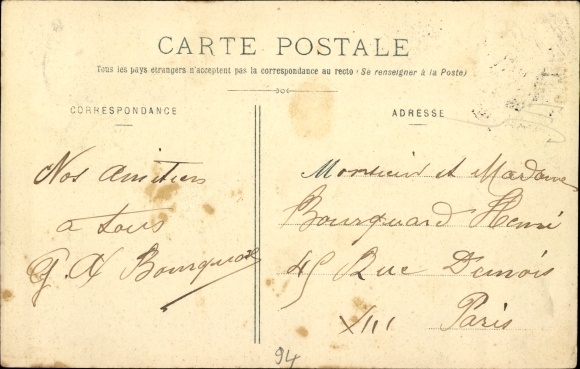 CARTE POSTALE
Tous les pays étrangers n'acceptent pas la correspondance au recto (Se renseigner à la Poste)
CORRESPONDANCE
Nos amitiés
a tous
G. A Bourquard
ADRESSE
Monsieur et Madame
Bourquard Henri
45 Rue Dunois
XIII Paris
94